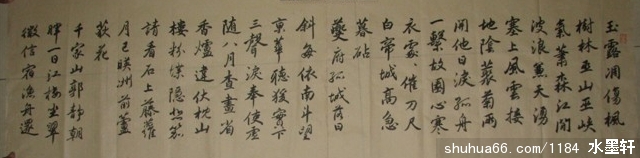 玉露凋伤枫
树林巫山巫峡
气萧森江间
波浪兼天湧
塞上风云接
地阴丛菊两
开他日泪孤舟
一繫故园心寒
衣處催刀尺
白帝城高急
暮砧
夔府孤城落日
斜每依南斗望
京华聽猿實下
三聲淚奉使虚
随八月查畫省
香爐違伏枕山
樓粉堞隱悲笳
請看石上藤蘿
月已映洲前蘆
荻花
千家山郭静朝
暉一日江樓坐翠
微信宿漁舟還
shuhua66.com/1184 水墨轩